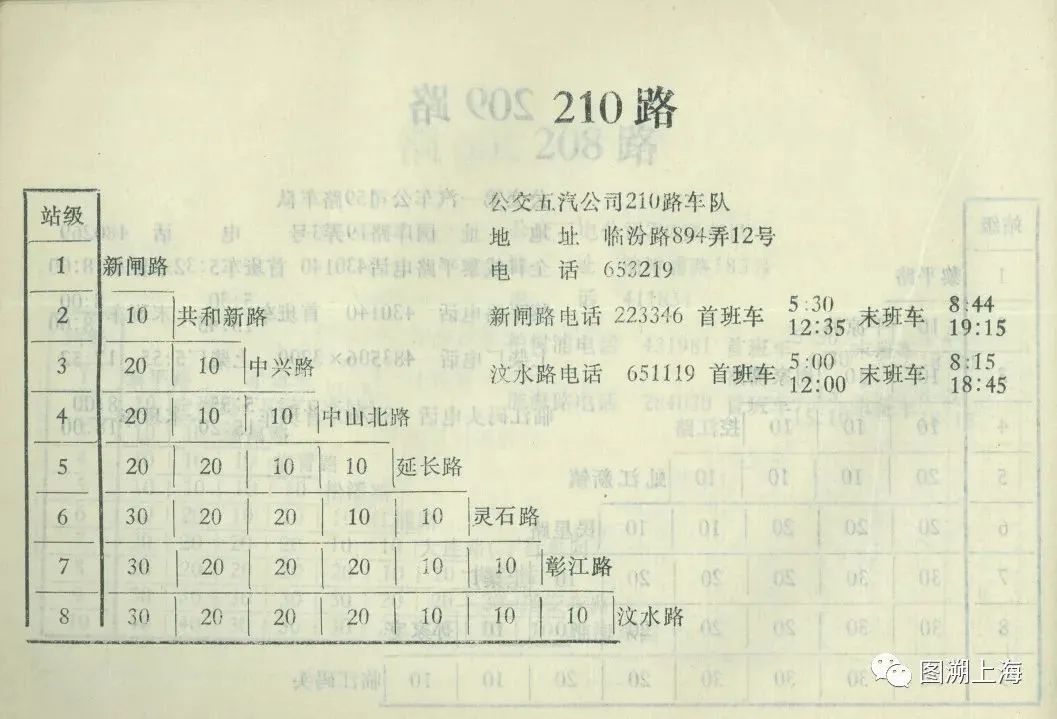 210路
公交五汽公司210路车队
地 址 临汾路894弄12号
电 话 653219
新闸路电话 223346 首班车 5:30 12:35 末班车 8:44 19:15
汶水路电话 651119 首班车 5:00 12:00 末班车 8:15 18:45
站级
1 新闸路
2 10 共和新路
3 20 10 中兴路
4 20 10 10 中山北路
5 20 20 10 10 延长路
6 30 20 20 10 10 灵石路
7 30 20 20 20 10 10 彰江路
8 30 20 20 20 10 10 10 汶水路
图溯上海